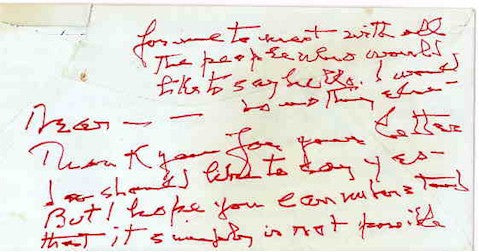 for me to meet with all
the people who would
like to say hello. I would
do nothing else -
Dear - -
Thank you for your letter
I so should like to say yes -
But I hope you can understand
that it simply is not possible